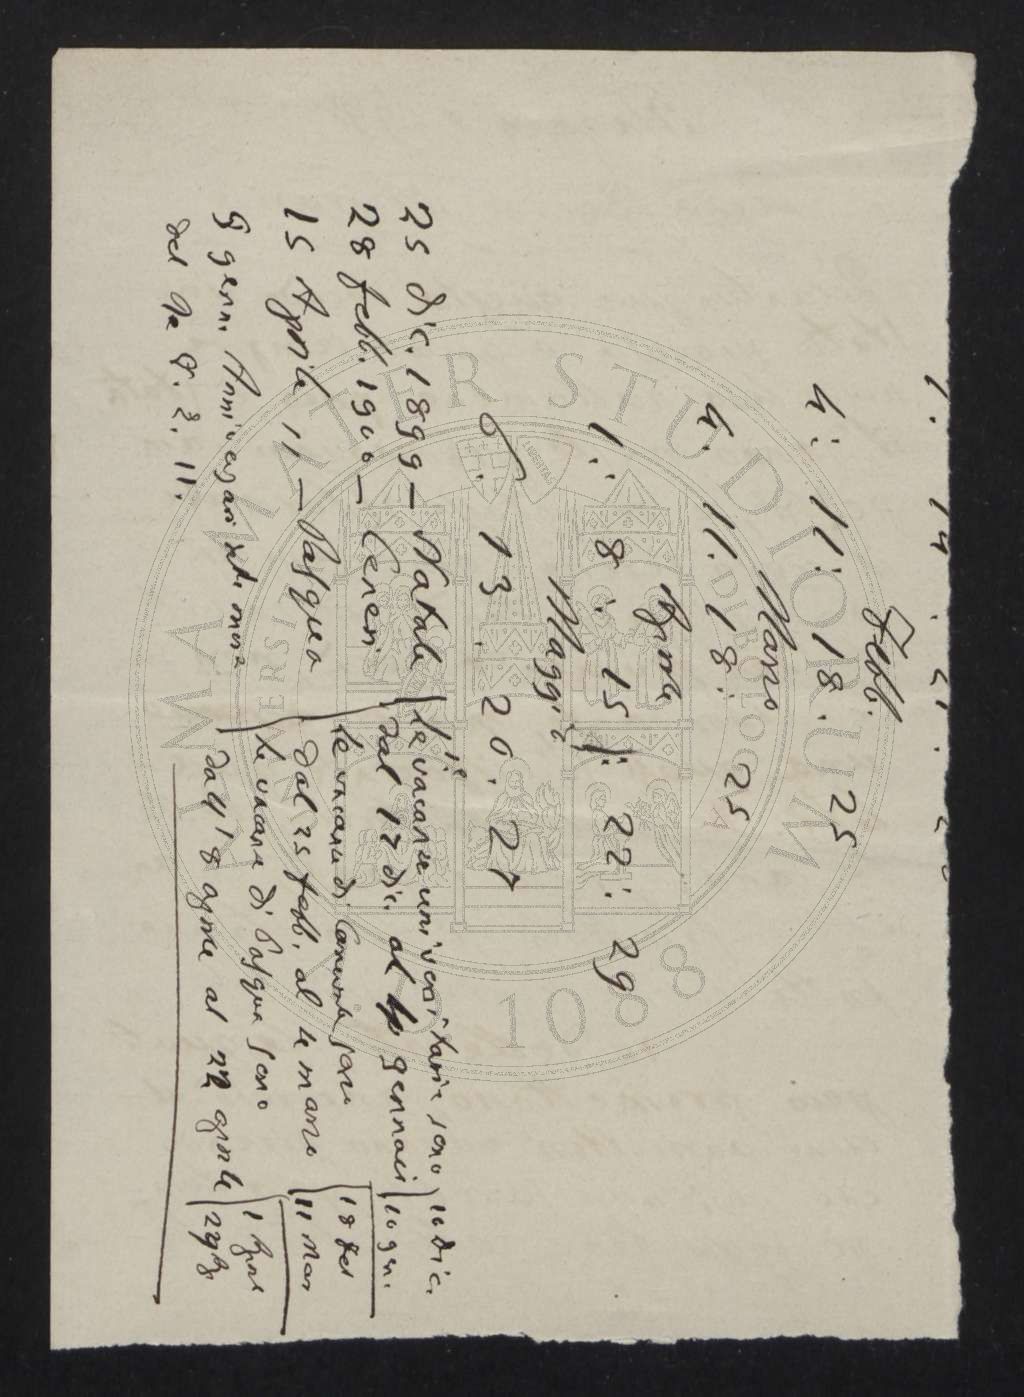 7. 14. 21. 2
Febb.
4: 11: 18. 25
Marzo
4. 11. 18. 25
Aprile
1. 8. 15): 22: 29
Maggio
6. 13. 20. 27
25 dic. 1899 — Natale (le vacanze universitarie sono 16 dic.
28 febb. 1900 — Ceneri (dal 17 dic. al 4 gennaio 10 gen.
15 Aprile " — Pasqua (le vacanze di Carnevale sono
dal 25 febb. al 4 marzo 11 Mar
9 genn. Anniversario della (le vacanze di Pasqua sono 1 Aprile
dall'8 aprile al 22 aprile
ALMA MATER STUDIORUM
A.D. 1088
LIBERTAS